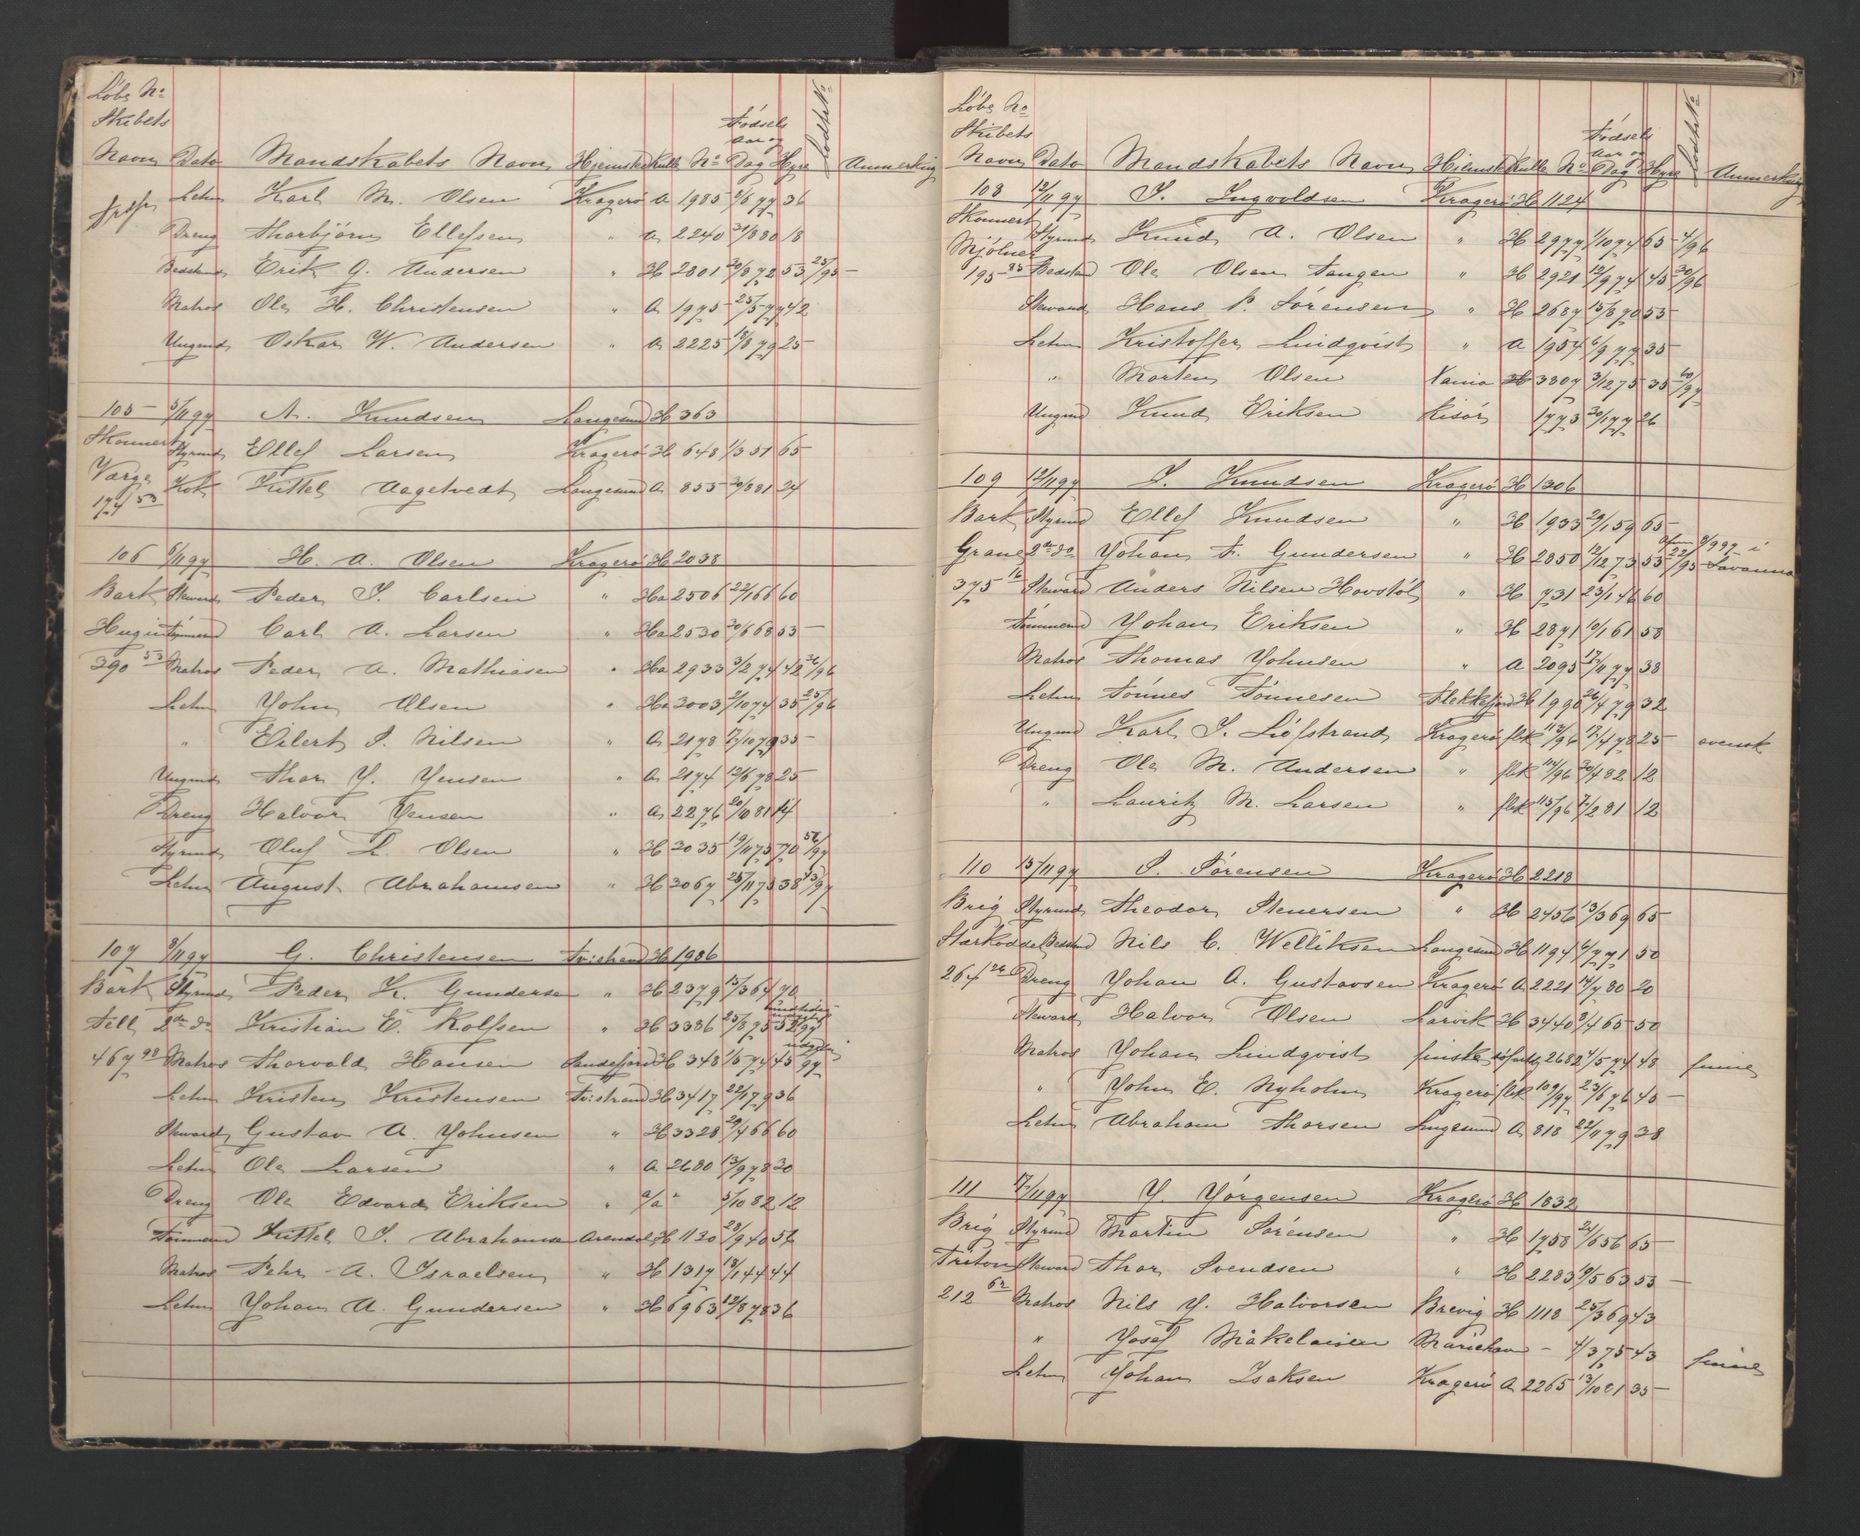 Löbe No
Skibets
Navn Dato Mandskabets Navn Hjemsted Rulle No Födsels Aar og Dag Hyre Lodts No Anmerkning
Letm Karl M. Olsen Kragerö A 1985 5/6 77 36
Dreng Thorbjörn Ellefsen " A 2240 31/8 80 18
Bedstmd Erik G. Andersen " H 2801 30/8 72 53 25/95
Matros Ole H. Christensen " A 1975 25/5 77 42
Ungmd Oskar W. Andersen " A 2225 18/8 79 25
105 5/11 97 A. Knudsen Langesund H 363
Skonnert Styrmd Ellef Larsen Kragerö H 648 1/3 51 65
Varge Kok Kittel Aagetvedt Langesund A 855 30/8 81 24
174 53
106 6/11 97 H. A. Olsen Kragerö H 2038
Bark Steward Peder J. Carlsen " Ha 2506 22/1 66 60
Hugin Tömmermd Carl A. Larsen " Ha 2530 30/6 68 55
390 53 Matros Peder A. Mathiasen " Ha 2933 3/2 74 42 36/96
Letm John Olsen " Ha 3003 2/10 74 35 25/96
" Eilert S. Nilsen " A 2178 7/10 79 35
Ungmd Thor J. Jensen " A 2174 12/6 78 25
Dreng Halvor Jensen " A 2276 20/10 81 14
Styrmd Oluf L. Olsen " H 3035 19/11 75 70 56/97
Letm August Abrahamsen " H 3067 25/11 75 38 43/97
107 8/11 97 G. Christensen Tvistrand H 1986
Bark Styrmd Peder K. Gundersen " H 2379 15/3 64 70
Tell 2den do Kristian E. Rolfsen " H 3386 25/8 75 52
467 98 Matros Thorvald Hansen Sandefjord H 348 1/5 74 45
Letm Kristen Kristensen Tvistrand H 3417 22/1 79 36
Steward Gustav A. Johnsen " H 3328 29/4 66 60
Letm Ole Larsen " A 2680 13/9 78 30
Dreng Ole Edvard Eriksen " a/a 5/10 82 12
Tömmermd Kittel J. Abrahamsen Arendal H 1130 28/9 40 56
Matros Pehr A. Israelsen " H 1317 13/1 44 44
Letm Johan A. Gundersen " H 6963 12/8 78 36
Löbe No
Skibets
Navn Dato Mandskabets Navn Hjemsted Rulle No Födsels Aar og Dag Hyre Lodts No Anmerkning
108 12/11 97 J. Ingvoldsen Kragerö H 1124
Skonnert Styrmd Knud A. Olsen " H 2977 1/10 74 65 4/96
Mjölner
195 85 Bedstmd Ole Olsen Tangen " H 2921 12/9 74 45 30/96
Steward Hans P. Sörensen " H 2687 15/8 70 55
Letm Kristoffer Lindqvist " A 1954 6/9 77 35
" Morten Olsen Xania H 3307 3/12 75 35 60/97
Ungmd Knud Eriksen Risör 1773 30/1 77 26
109 12/11 97 J. Knudsen Kragerö H 1306
Bark Styrmd Ellef Knudsen " H 1933 29/1 59 65
Grane 2den do Johan F. Gundersen " H 2850 12/12 73 55 22/95 Savanna
375 16 Steward Anders Nilsen Hovstöl " H 731 23/1 46 60
Tömmermd Johan Eriksen " H 2871 10/1 61 58
Matros Thomas Johnsen " A 2095 17/11 77 38
Letm Tönnes Tönnesen Flekkefjord H 1990 26/4 79 32
Ungmd Karl J. Löfstrand Kragerö flk 113/96 17/4 78 25 svensk
Dreng Ole M. Andersen " flk 114/96 20/4 82 12
" Lauritz M. Larsen " flk 115/96 7/2 81 12
110 15/11 97 S. Sörensen Kragerö H 2218
Brig Styrmd Theodor Stenersen " H 2456 13/3 69 65
Stærkodder Bedstmd Nils C. Welliksen Langesund H 1194 6/7 71 50
264 26 Dreng Johan A. Gustavsen Kragerö A 2221 14/7 80 20
Steward Halvor Olsen Larvik H 3440 3/4 65 50
Matros Johan Lindqvist finske 2682 4/5 74 48 finne
" John E. Nyholm Kragerö flk 109/97 23/6 76 45
Letm Abraham Thorsen Langesund A 818 22/11 79 38
111 17/11 97 J. Jörgensen Kragerö H 1832
Brig Styrmd Martin Sörensen " H 1758 21/6 56 65
Triton Steward Thor Svendsen " H 2283 19/5 63 55
212 62 Matros Nils J. Halvorsen Brevig H 1118 25/3 69 43
" Josef Mäkelaisen Mariehavn – 4/3 75 43 finne
Letm Johan Isaksen Kragerö A 2265 13/10 81 35